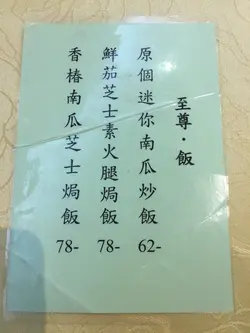 至尊·飯
原個迷你南瓜炒飯 62-
鮮茄芝士素火腿焗飯 78-
香椿南瓜芝士焗飯 78-